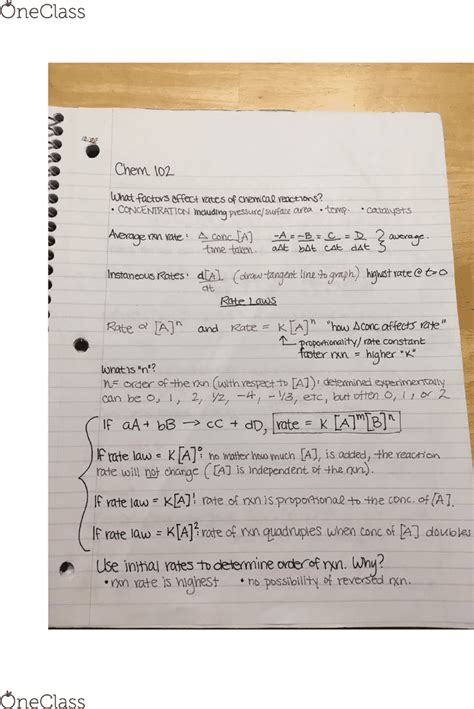 OneClass
12.20
Chem 102
What factors affect rates of chemical reactions?
• CONCENTRATION including pressure/surface area • temp. • catalysts
Average rxn rate: Δ conc [A] / time taken. -A/aΔt = -B/bΔt = C/cΔt = D/dΔt } average.
Instaneous Rates: d[A]/dt (draw tangent line to graph) highest rate @ t=0
Rate Laws
Rate α [A]ⁿ and Rate = K[A]ⁿ "how Δconc affects rate"
↑ proportionality/rate constant
faster rxn = higher "K"
What is "n"?
n= order of the rxn (with respect to [A]); determined experimentally
can be 0, 1, 2, 1/2, -4, -1/3, etc, but often 0, 1, or 2
If aA + bB → cC + dD, rate = K[A]ᵐ[B]ⁿ
If rate law = K[A]⁰: no matter how much [A], is added, the reaction
rate will not change ([A] is independent of the rxn).
If rate law = K[A]¹: rate of rxn is proportional to the conc. of [A].
If rate law = K[A]²: rate of rxn quadruples when conc of [A] doubles
Use initial rates to determine order of rxn. Why?
• rxn rate is highest • no possibility of reversed rxn.
OneClass